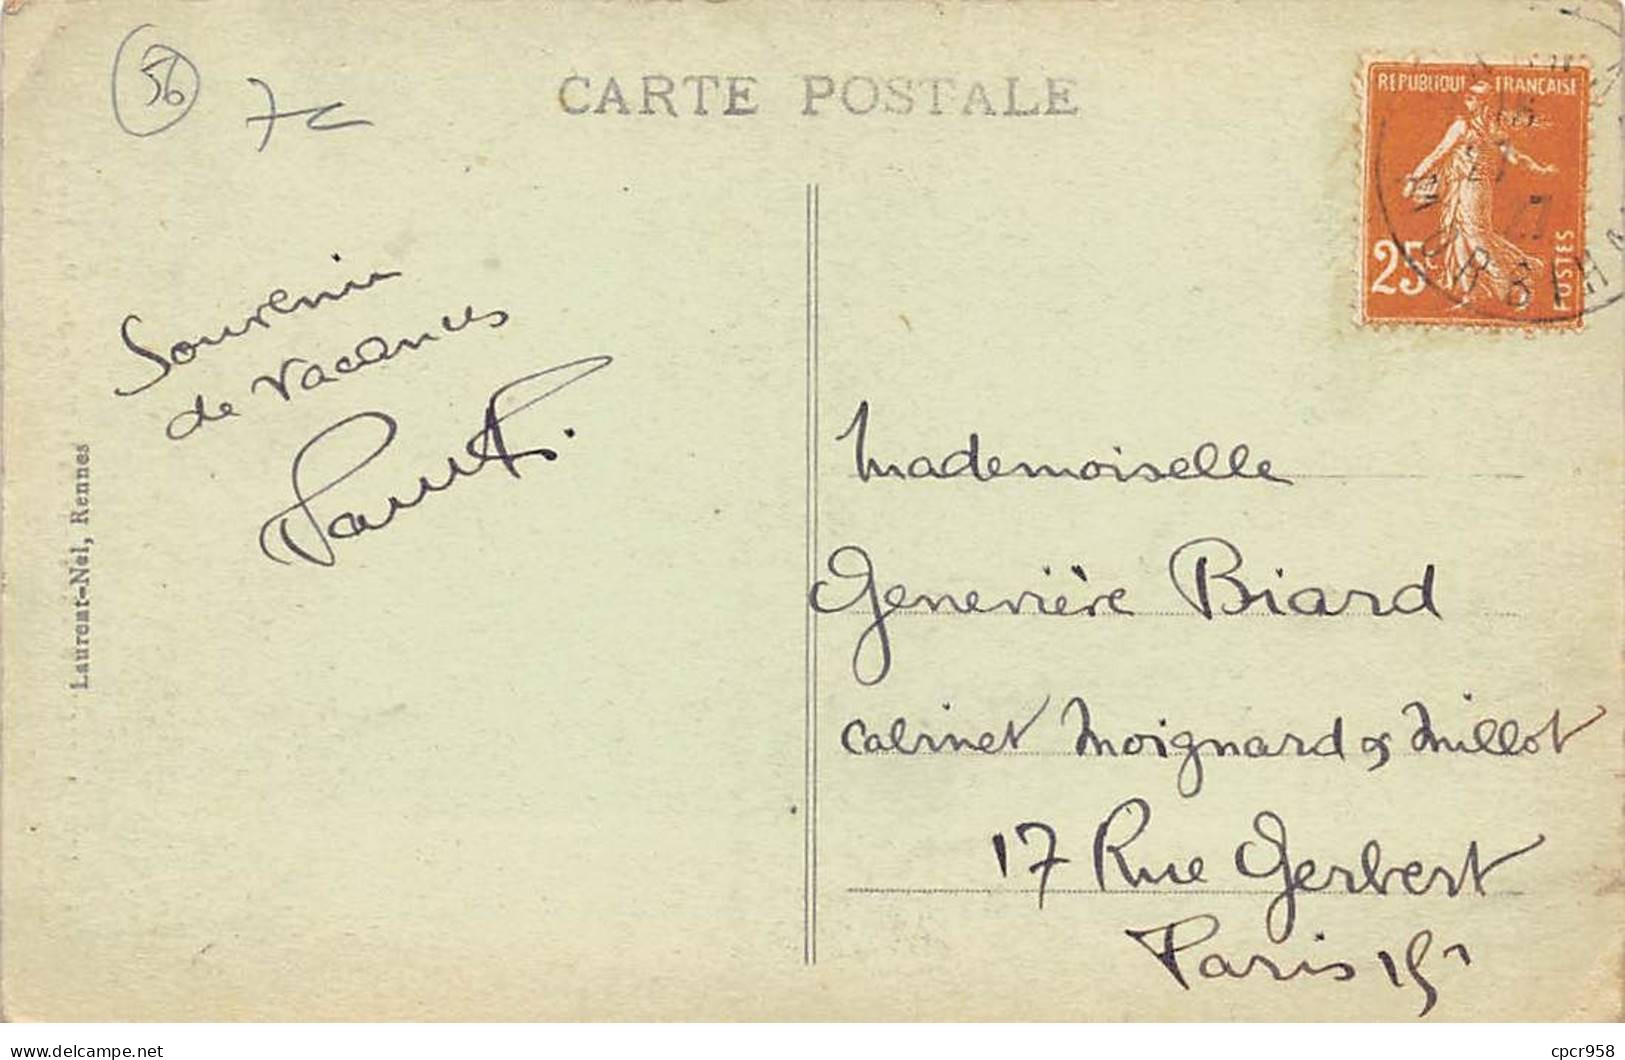 56
7c
CARTE POSTALE
REPUBLIQUE FRANÇAISE
25c
POSTES
MORBIHAN
Souvenir
de vacances
Laurent-Nel, Rennes
Mademoiselle
Geneviève Biard
Cabinet Moignard & Millot
17 Rue Gerbert
Paris 15
delcampe.net
cpcr958